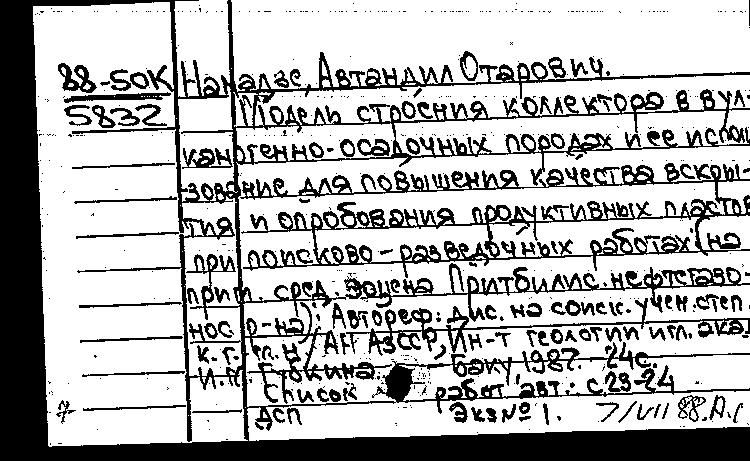 88-50К Намадзе, Автандил Отарович.
5832 Модель строения коллектора в вул-
каногенно-осадочных породах и ее исполь
зование для повышения качества вскры-
тия и опробования продуктивных пластов
при поисково-разведочных работах (на
прим. сред. эоцена Притбилис. нефтегазо-
нос. р-на): Автореф. дис. на соиск. учен. степ.
к. г.-м. н / АН АзССР, Ин-т геологии им. акад.
И.М. Губкина. - Баку 1987. - 24с.
Список работ авт.: с.23-24
ДСП Экз № 1. 7/VII 88.